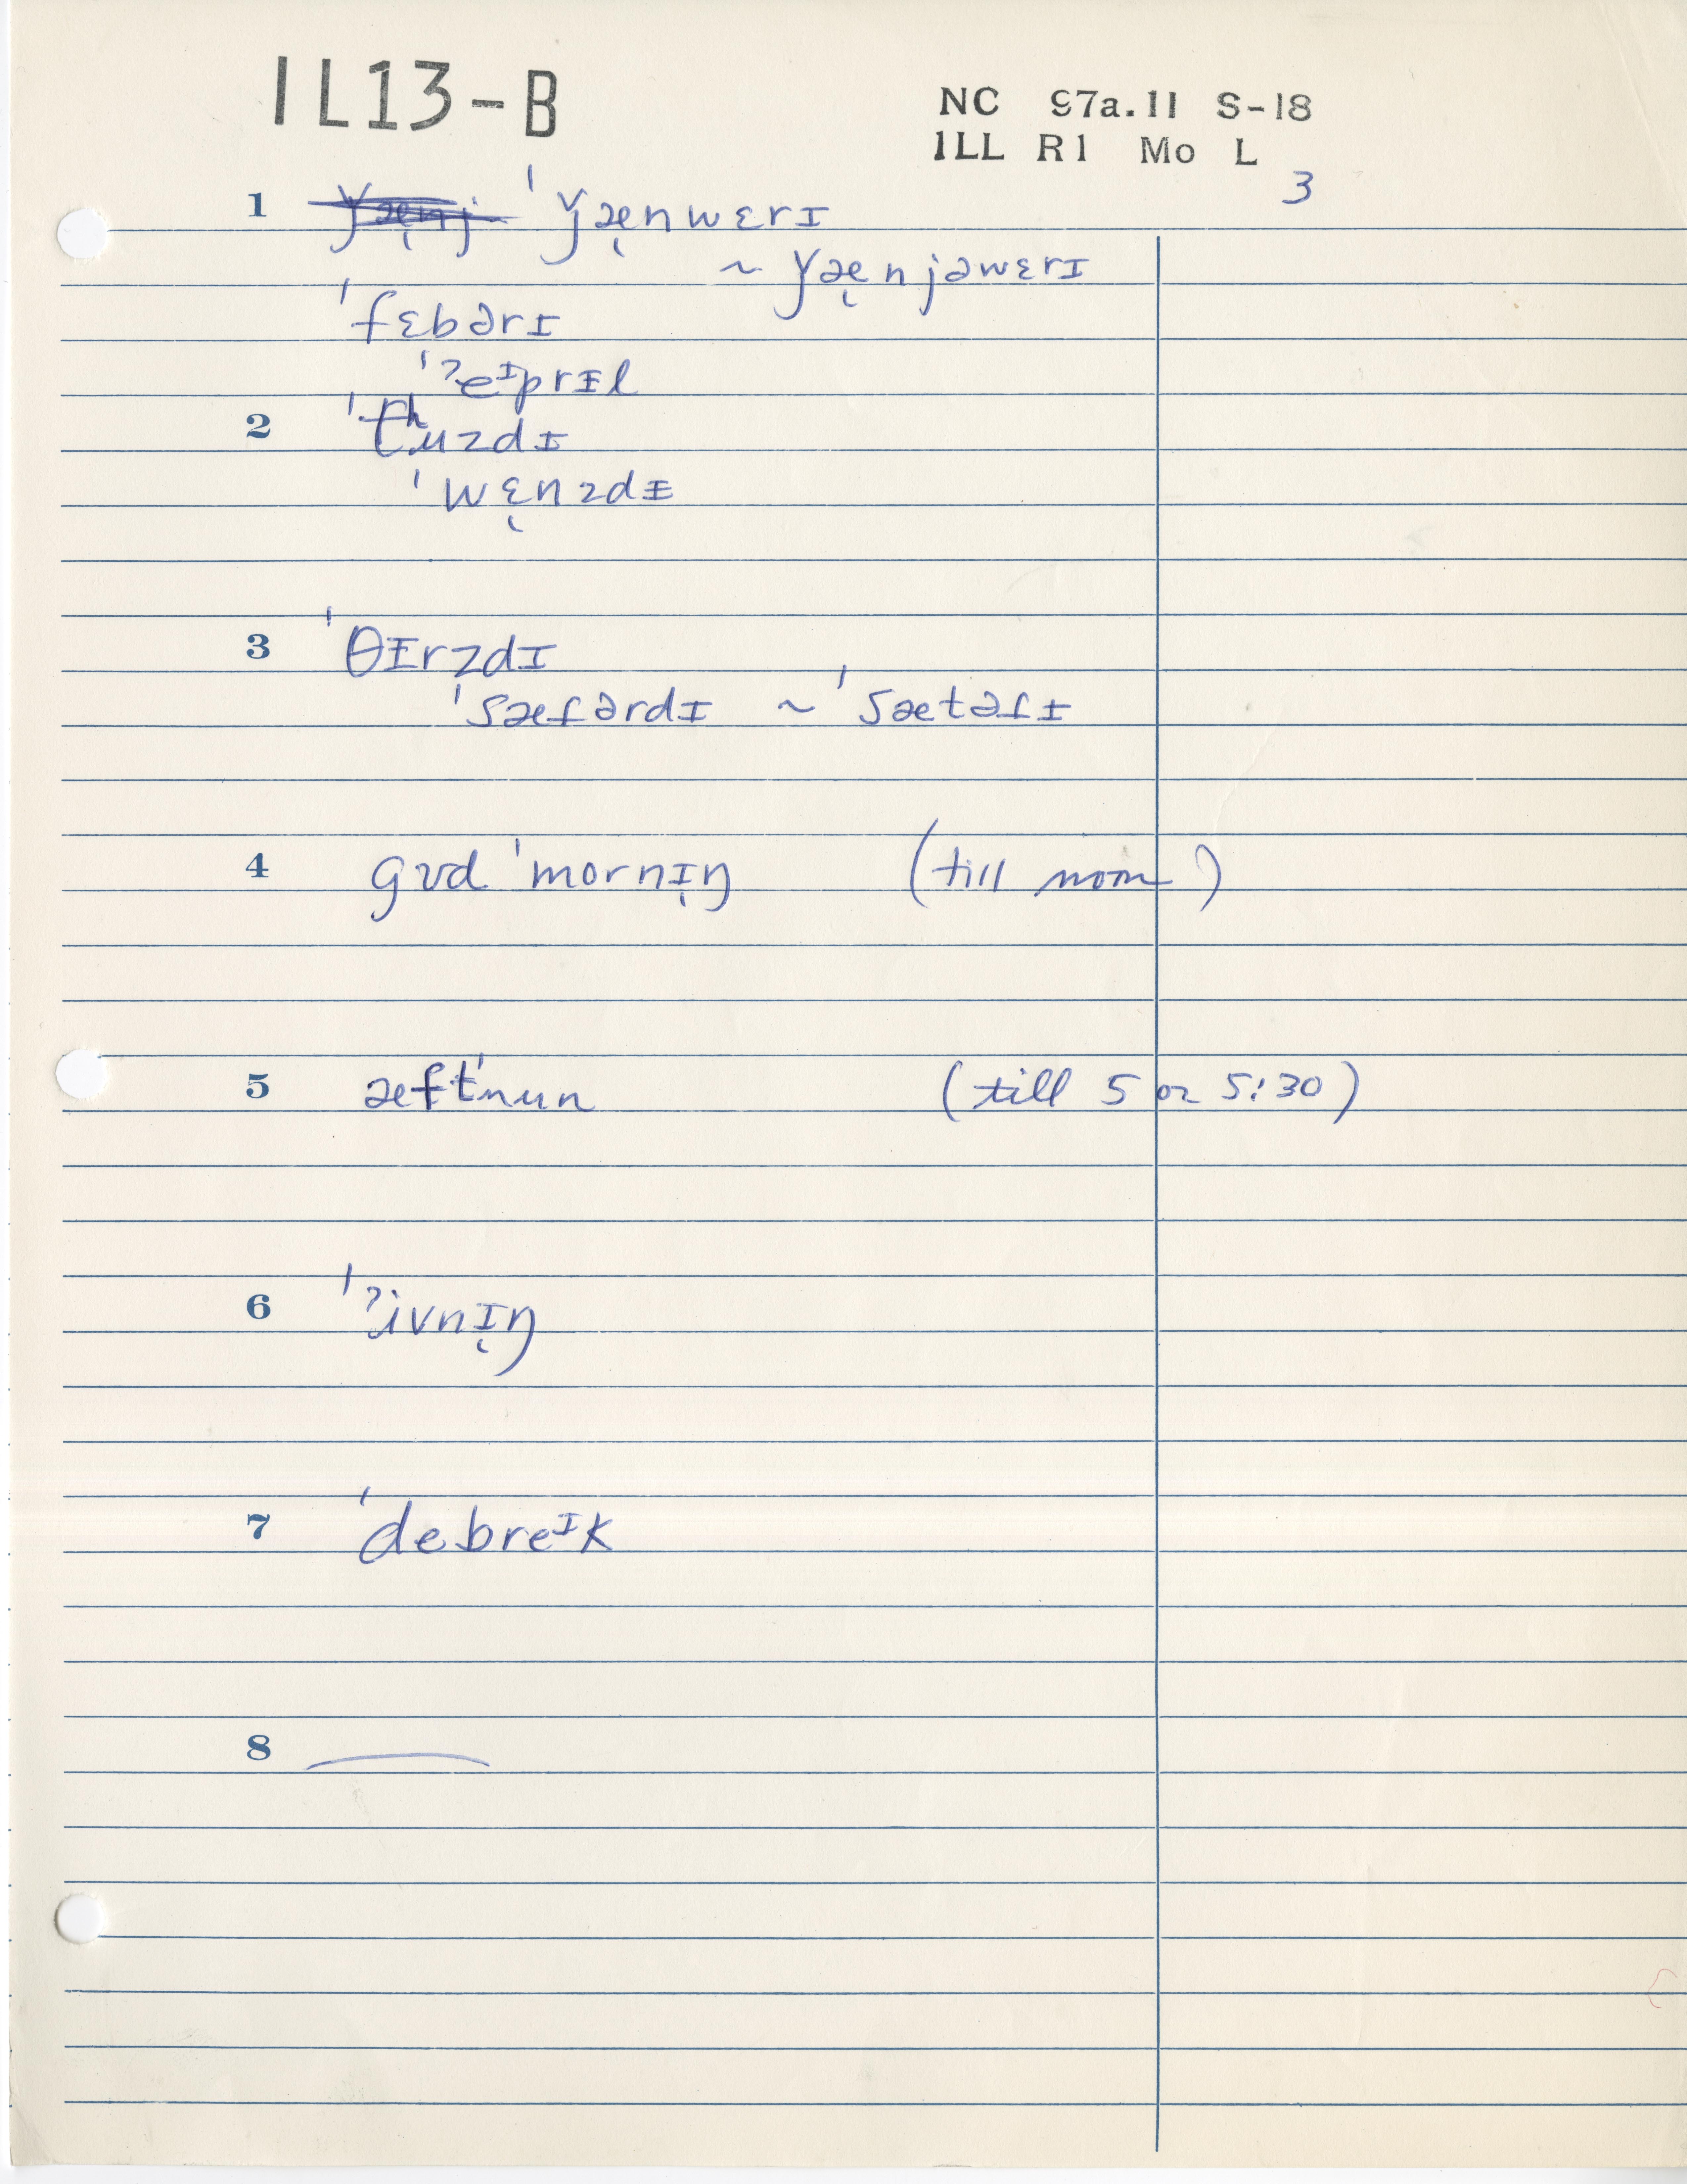 IL13-B
NC 97a.11 S-18
ILL R1 Mo L
3
1 ˈǰæ̨nwɛrɪ
~ ǰæ̨njəwɛrɪ
ˈfɛbərɪ
ˈʔeᶦprɪl
2 ˈtʰuzdɪ
ˈwɛ̨nzdɪ
3 ˈθɪrzdɪ
ˈsæɾərdɪ ~ ˈsætəɾɪ
4 gʊd ˈmornɪ̨ŋ (till noon)
5 æftˈnun (till 5 or 5:30)
6 ˈʔivnɪ̨ŋ
7 ˈdebreᶦk
8